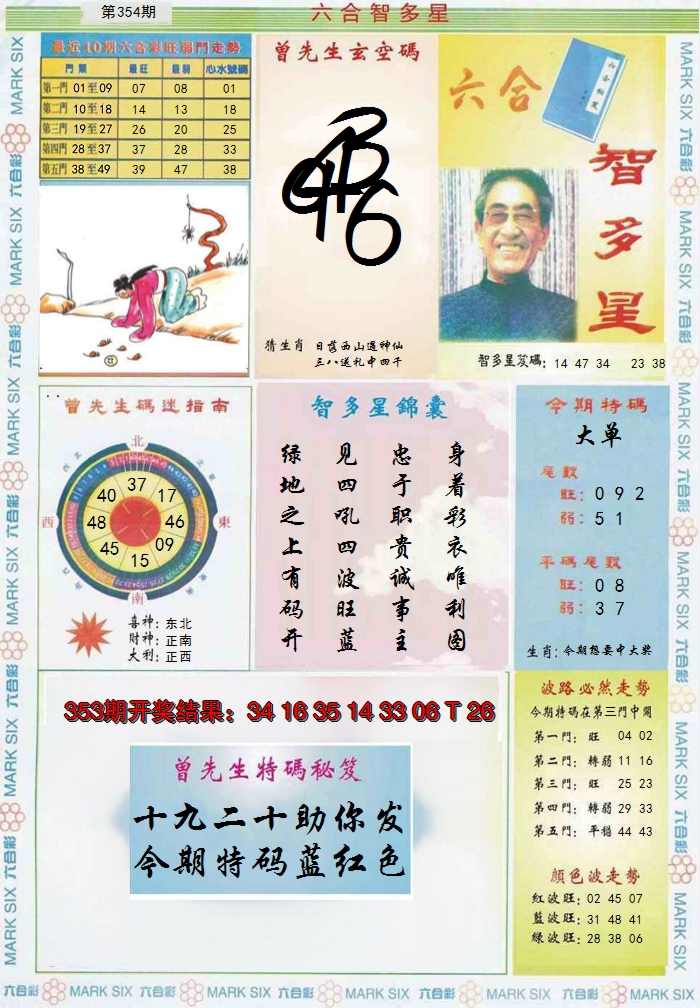 第354期
六合智多星
最近10期六合彩旺弱門走勢
門類 最旺 最弱 心水號碼
第一門 01至09 07 08 01
第二門 10至18 14 13 18
第三門 19至27 26 20 25
第四門 28至37 37 28 33
第五門 38至49 39 47 38
曾先生玄空碼
猜生肖 日落西山遇神仙
三八送礼中四千
六合
智多星
智多星笈碼: 14 47 34 23 38
曾先生碼迷指南
北
西北
東北
西
東
西南
東南
南
37
17
46
09
15
45
48
40
喜神: 东北
財神: 正南
大利: 正西
智多星錦囊
身着彩衣唯利图
忠于职责诚事主
见四吼四波旺蓝
绿地之上有码开
今期特碼
大单
尾数
旺: 0 9 2
弱: 5 1
平碼尾数
旺: 0 8
弱: 3 7
生肖: 今期想要中大奖
353期开奖结果: 34 16 35 14 33 06 T 26
曾先生特碼秘笈
十九二十助你发
今期特码蓝红色
波路必然走勢
今期特碼在第三門中開
第一門: 旺 04 02
第二門: 轉弱 11 16
第三門: 旺 25 23
第四門: 轉弱 29 33
第五門: 平穩 44 43
顏色波走勢
紅波旺: 02 45 07
藍波旺: 31 48 41
綠波旺: 28 38 06
六合彩 MARK SIX 六合彩 MARK SIX 六合彩 MARK SIX 六合彩 MARK SIX 六合彩 MARK SIX